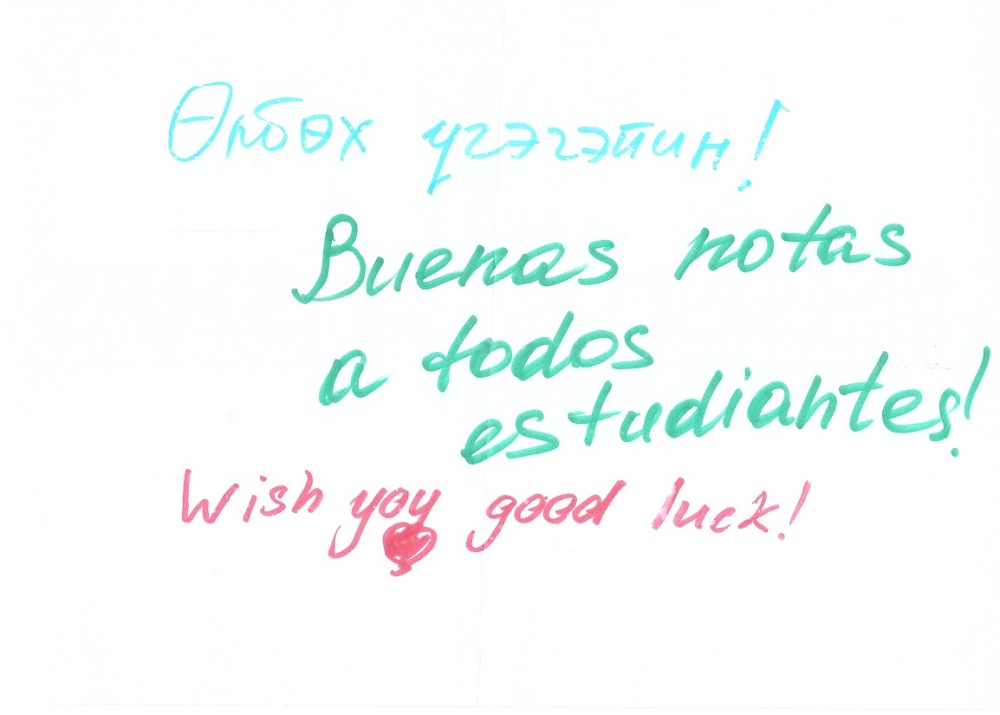 Өлбөх үгэгэйин!
Buenas notas
a todos
estudiantes!
Wish you good luck!